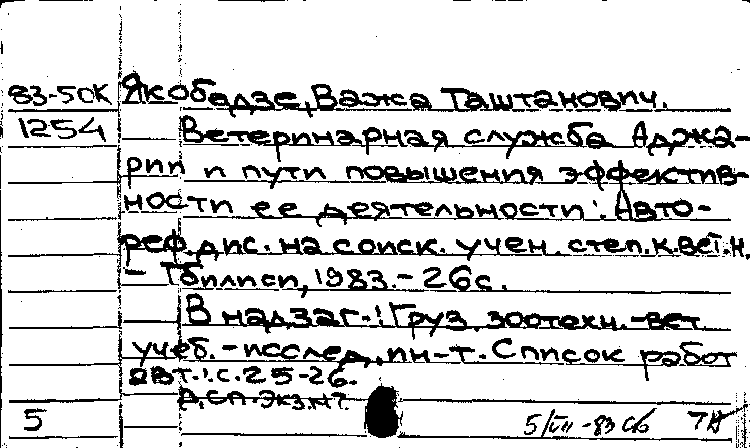 83-50К Якобадзе, Важа Таштанович.
1254 Ветеринарная служба Аджа-
рии и пути повышения эффектив-
ности ее деятельности: Авто-
реф. дис. на соиск. учен. степ. к.вет.н.
- Тбилиси, 1983.-26с.
В надзаг.: Груз. зоотехн.-вет
учеб.-исслед. ин-т. Список работ
авт.: с.25-26.
5 5/VII-83